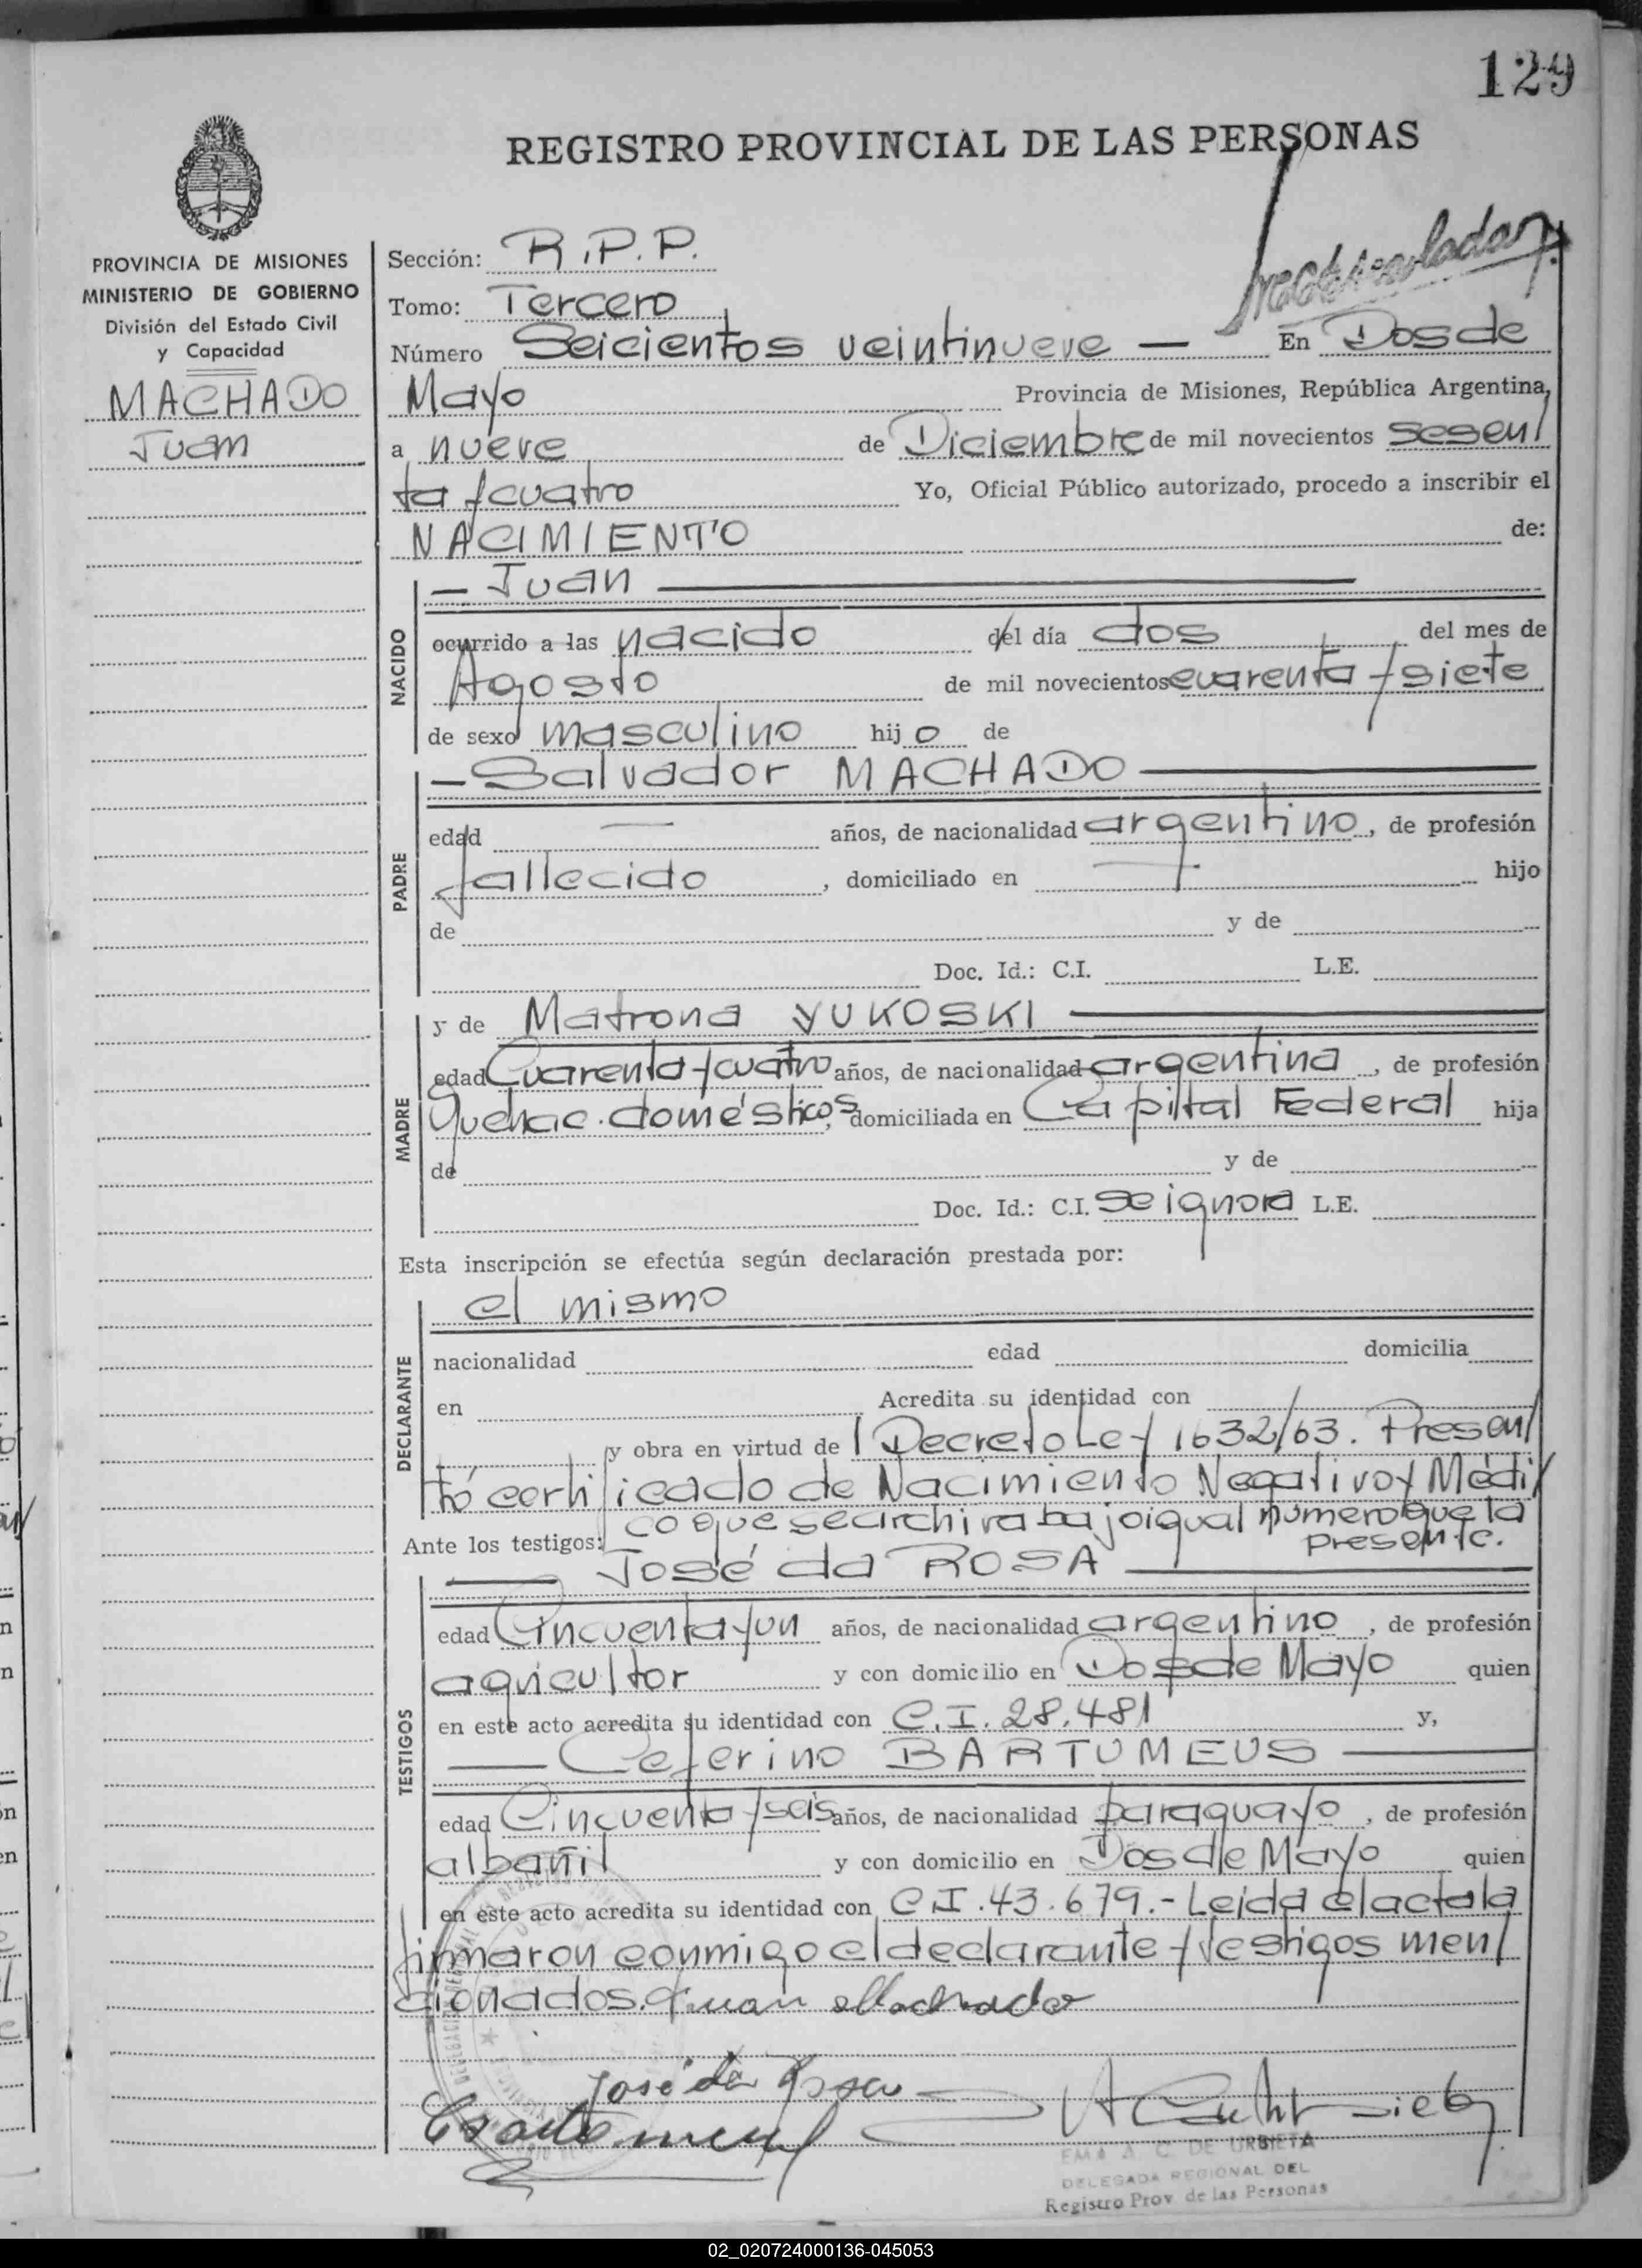 129
REGISTRO PROVINCIAL DE LAS PERSONAS
PROVINCIA DE MISIONES
MINISTERIO DE GOBIERNO
División del Estado Civil
y Capacidad
MACHADO
Juan
Sección: R.P.P.
Tomo: Tercero
Número Seicientos veintinueve — En Dos de
Mayo Provincia de Misiones, República Argentina,
a nueve de Diciembre de mil novecientos sesen/
ta y cuatro Yo, Oficial Público autorizado, procedo a inscribir el
NACIMIENTO de:
NACIDO
— Juan —
ocurrido a las nacido del día dos del mes de
Agosto de mil novecientos cuarenta y siete
de sexo masculino hijo de
PADRE
— Salvador MACHADO —
edad — años, de nacionalidad argentino, de profesión
fallecido, domiciliado en — hijo
de y de
Doc. Id.: C.I. L.E.
MADRE
y de Matrona YUKOSKI —
edad Cuarenta y cuatro años, de nacionalidad argentina, de profesión
Quehac. domésticos, domiciliada en Capital Federal hija
de y de
Doc. Id.: C.I. se ignora L.E.
Esta inscripción se efectúa según declaración prestada por:
DECLARANTE
el mismo
nacionalidad edad domicilia
en Acredita su identidad con
y obra en virtud de l Decreto Ley 1632/63. Presen/
tó certificado de Nacimiento Negativo y Médi/
co que se archiva bajo igual número que la
presente.
Ante los testigos:
TESTIGOS
— José da ROSA —
edad Cincuenta y un años, de nacionalidad argentino, de profesión
agricultor y con domicilio en Dos de Mayo quien
en este acto acredita su identidad con C.I. 28.481 y,
— Ceferino BARTUMEUS —
edad Cincuenta y seis años, de nacionalidad paraguayo, de profesión
albañil y con domicilio en Dos de Mayo quien
en este acto acredita su identidad con C.I. 43.679.- Leida el acta la
firmaron conmigo el declarante y testigos men/
cionados. Juan Machado
José da Rosa
EMA A. C. DE URBIETA
DELEGADA REGIONAL DEL
Registro Prov. de las Personas
02_020724000136-045053